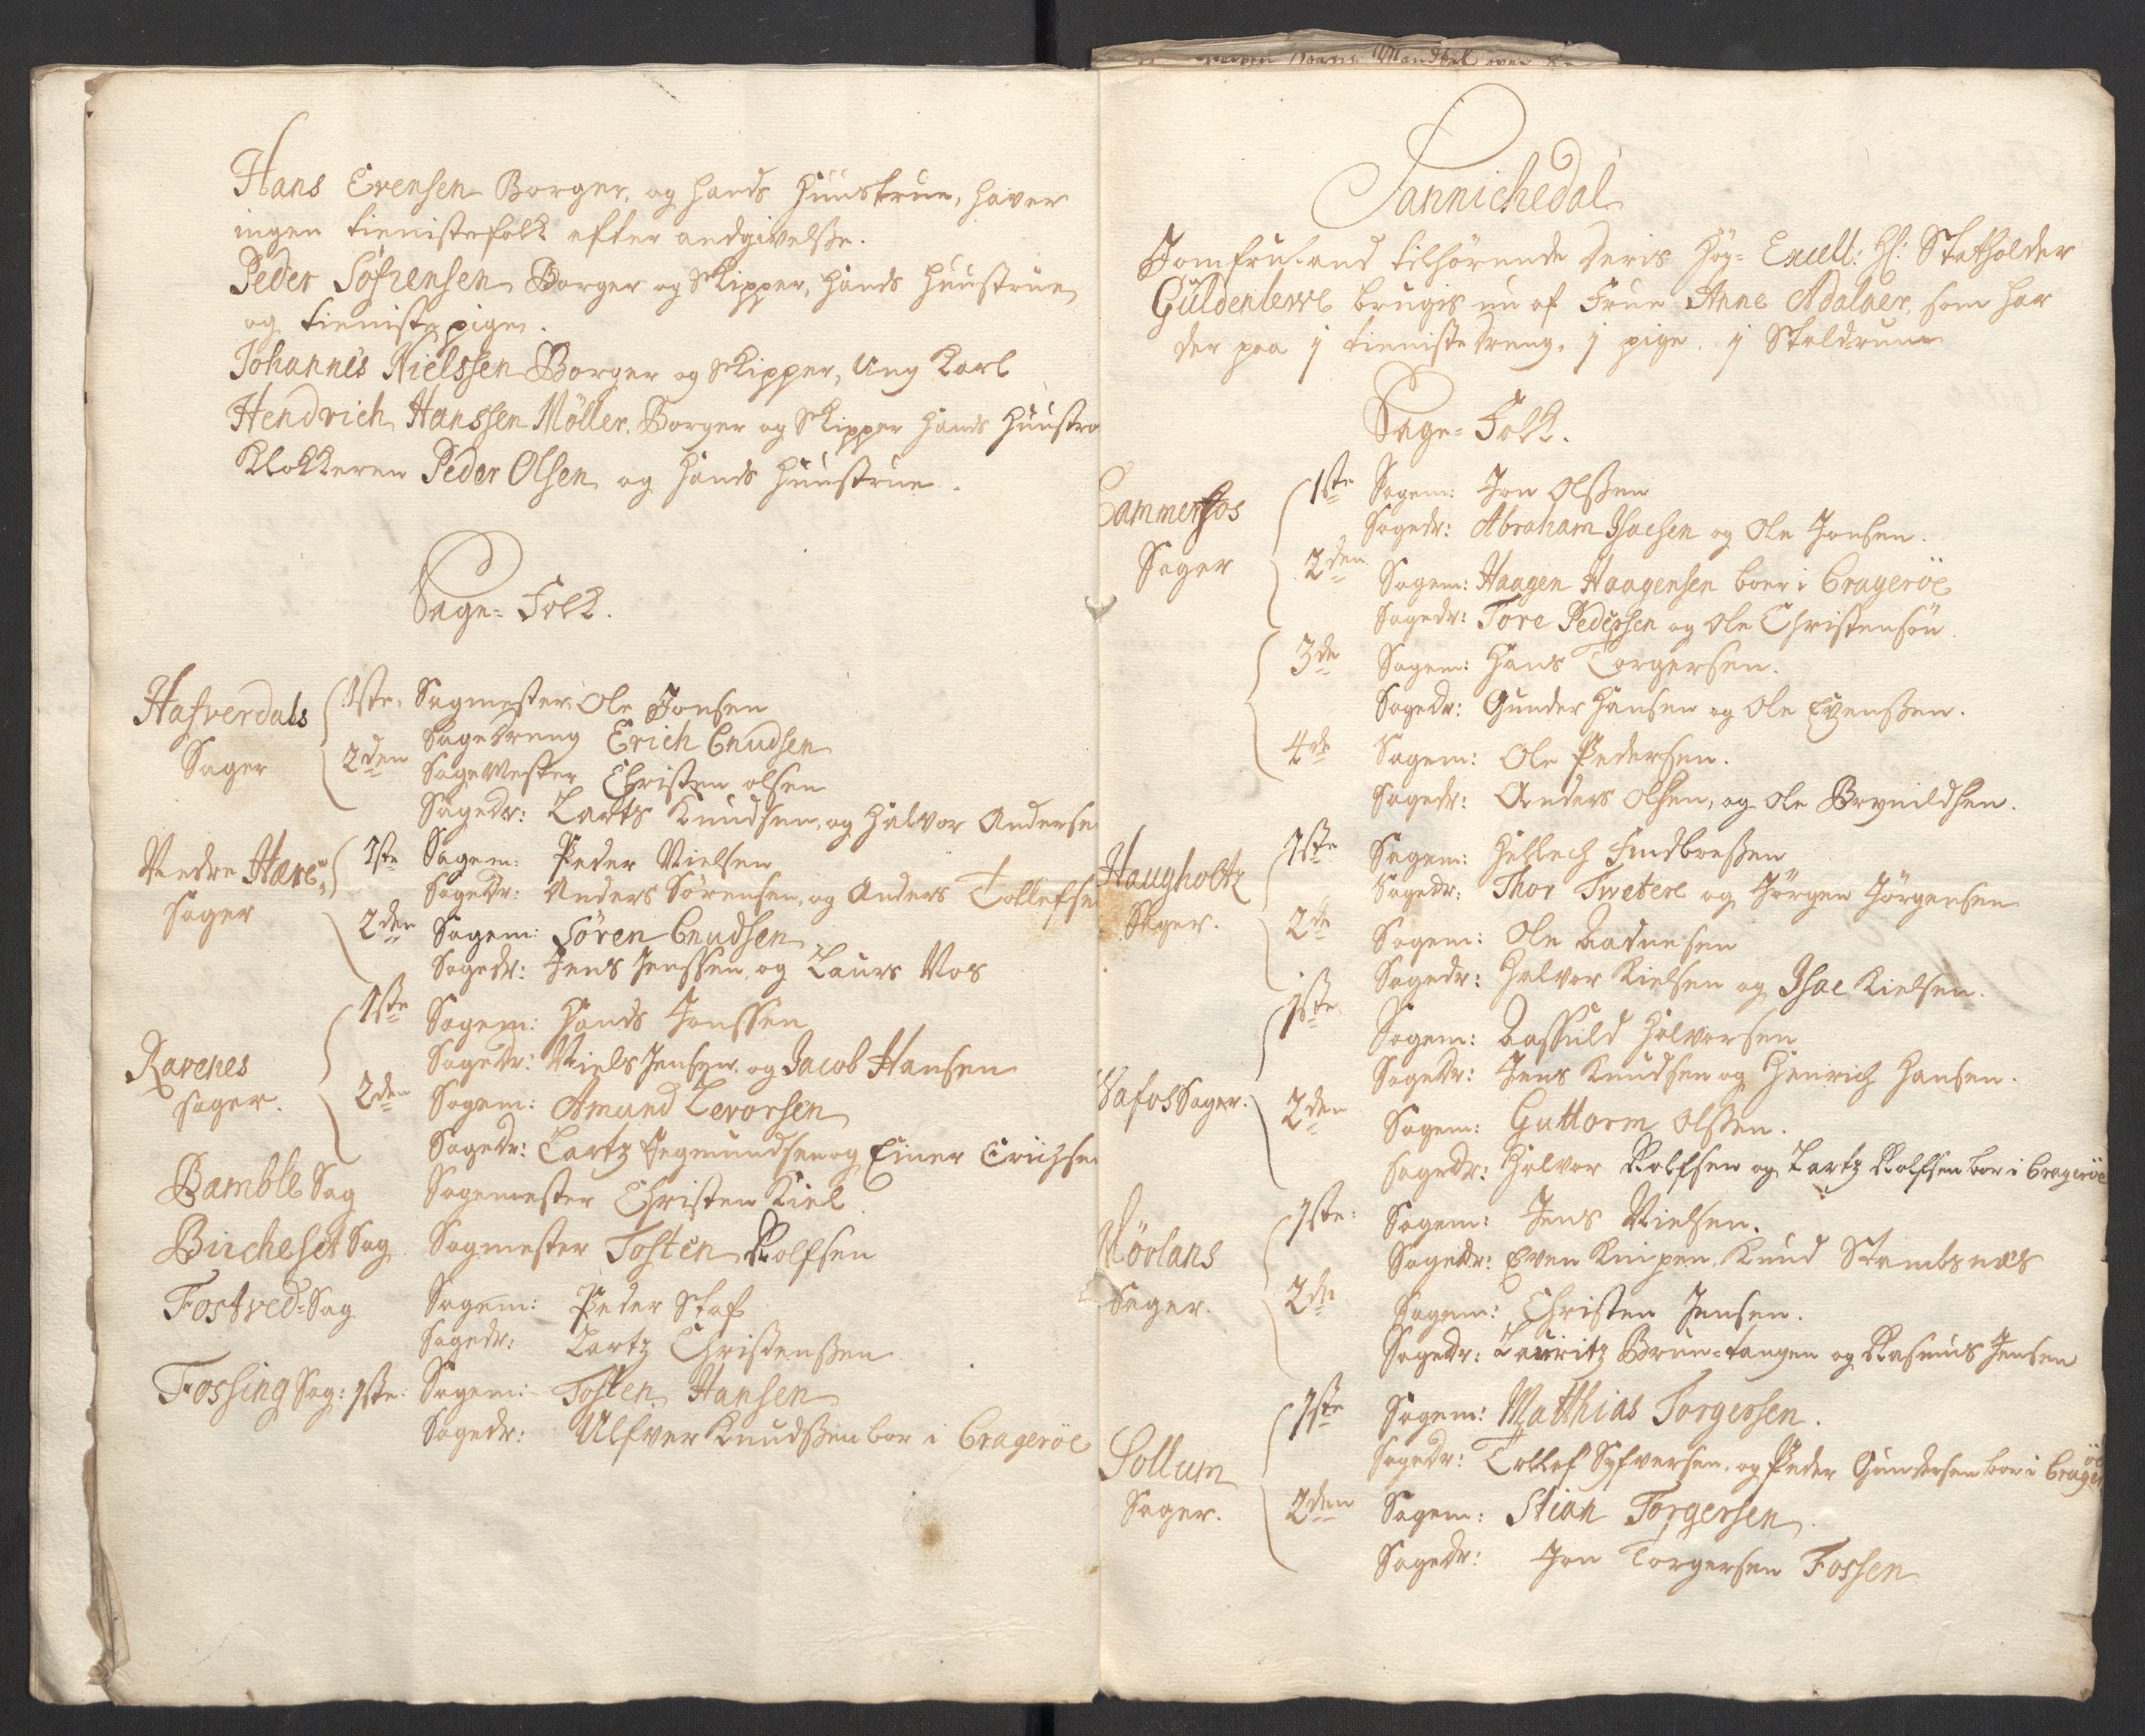 Hans Evensen Borger, og hands Huustrue, haver
ingen tienistefolk efter andgivelsße.
Peder Söfrensen Borger og Skipper, hands Huustrue
og tienistepige.
Johannes Nielssen Borger og Skipper, Ung Karl
Hendrich Hanssen Möller. Borger og Skipper hands Huustro
Klokkeren Peder Olsen og hands Huustrue.
Sage-Folk.
Hafverdals Sager
1ste. Sagmester Ole Jonsen
Sagedreng Erich Cnudsen
2den Sagemester Christen olsen
Sagedr: Lartz Knudsen, og Halvor Anderse
Nedre Herre Sager
1ste Sagem: Peder Nielsen
Sagedr: Anders Sörensen, og Anders Tollefse
2den Sagem: Sören Cnudsen
Sagedr: Jens Jenssen, og Laurs Vos
Ravenes Sager.
1ste Sagem: Hands Jonssen
Sagedr: Niels Jensen. og Jacob Hansen
2den Sagem: Amund Levorsen
Sagedr: Lartz Segmundsen og Einer Erichse
Bamble Sag Sagemester Christen Kiel
Bircheset Sag Sagmester Tosten Rolfsen
Fostved-Sag Sagem: Peder Staf
Sagedr: Lartz Christensßen
Fossing Sag: 1ste: Sagem: Tosten Hansen
Sagedr: Ulfver Knudsßen bor i Crageröe
Sannichedal
Jomfruland tilhörende Deris Höy-Excell: Hr: Statholder
Güldenlewe brugis nu af Frue Anne Adalaer, som har
der paa 1 tienistedreng, 1 pige.
Sage-Folk.
Cammerfos Sager
1ste Sagem: Jon Olsßen
Sagedr: Abraham Isacsen og Ole Jonsen.
2den Sagem: Haagen Haagensen boer i Crageröe
Sagedr: Tore Pederssen og Ole Christensön.
3de Sagem: Hans Torgersen.
Sagedr: Gunder Hansen og Ole Evensßen.
4de Sagem: Ole Pedersen.
Sagedr: Anders Olsen, og Ole Brynildsen.
Haugholtz Sager.
1ste Sagem: Hellech Findboesßen
Sagedr: Thor Twetere og Jörgen Jörgensen
2de Sagem: Ole Aadnesen
Sagedr: Halvor Kielsen og Isac Kielsen.
Wafos Sager.
1ste Sagem: Aassuld Halvorsen
Sagedr: Jens Knudsen og Henrich Hansen.
2den Sagem: Guttorm Olsßen.
Sagedr: Halvor Rolfsen og Lartz Rolfsen bor i Crageröe
Mörlans Sager.
1ste: Sagem: Jens Nielsen.
Sagedr: Even Knipen. Knud Stambsnæs
2de Sagem: Christen Jensen.
Sagedr: Lauritz Brun-tangen og Rasmus Jensen
Sollum Sager.
1ste Sagem: Matthias Torgersen.
Sagedr: Tollef Syfversen. og Peder Gundersen bor i Crageröe
2den Sagem: Stian Torgersen.
Sagedr: Jon Torgersen Fossen